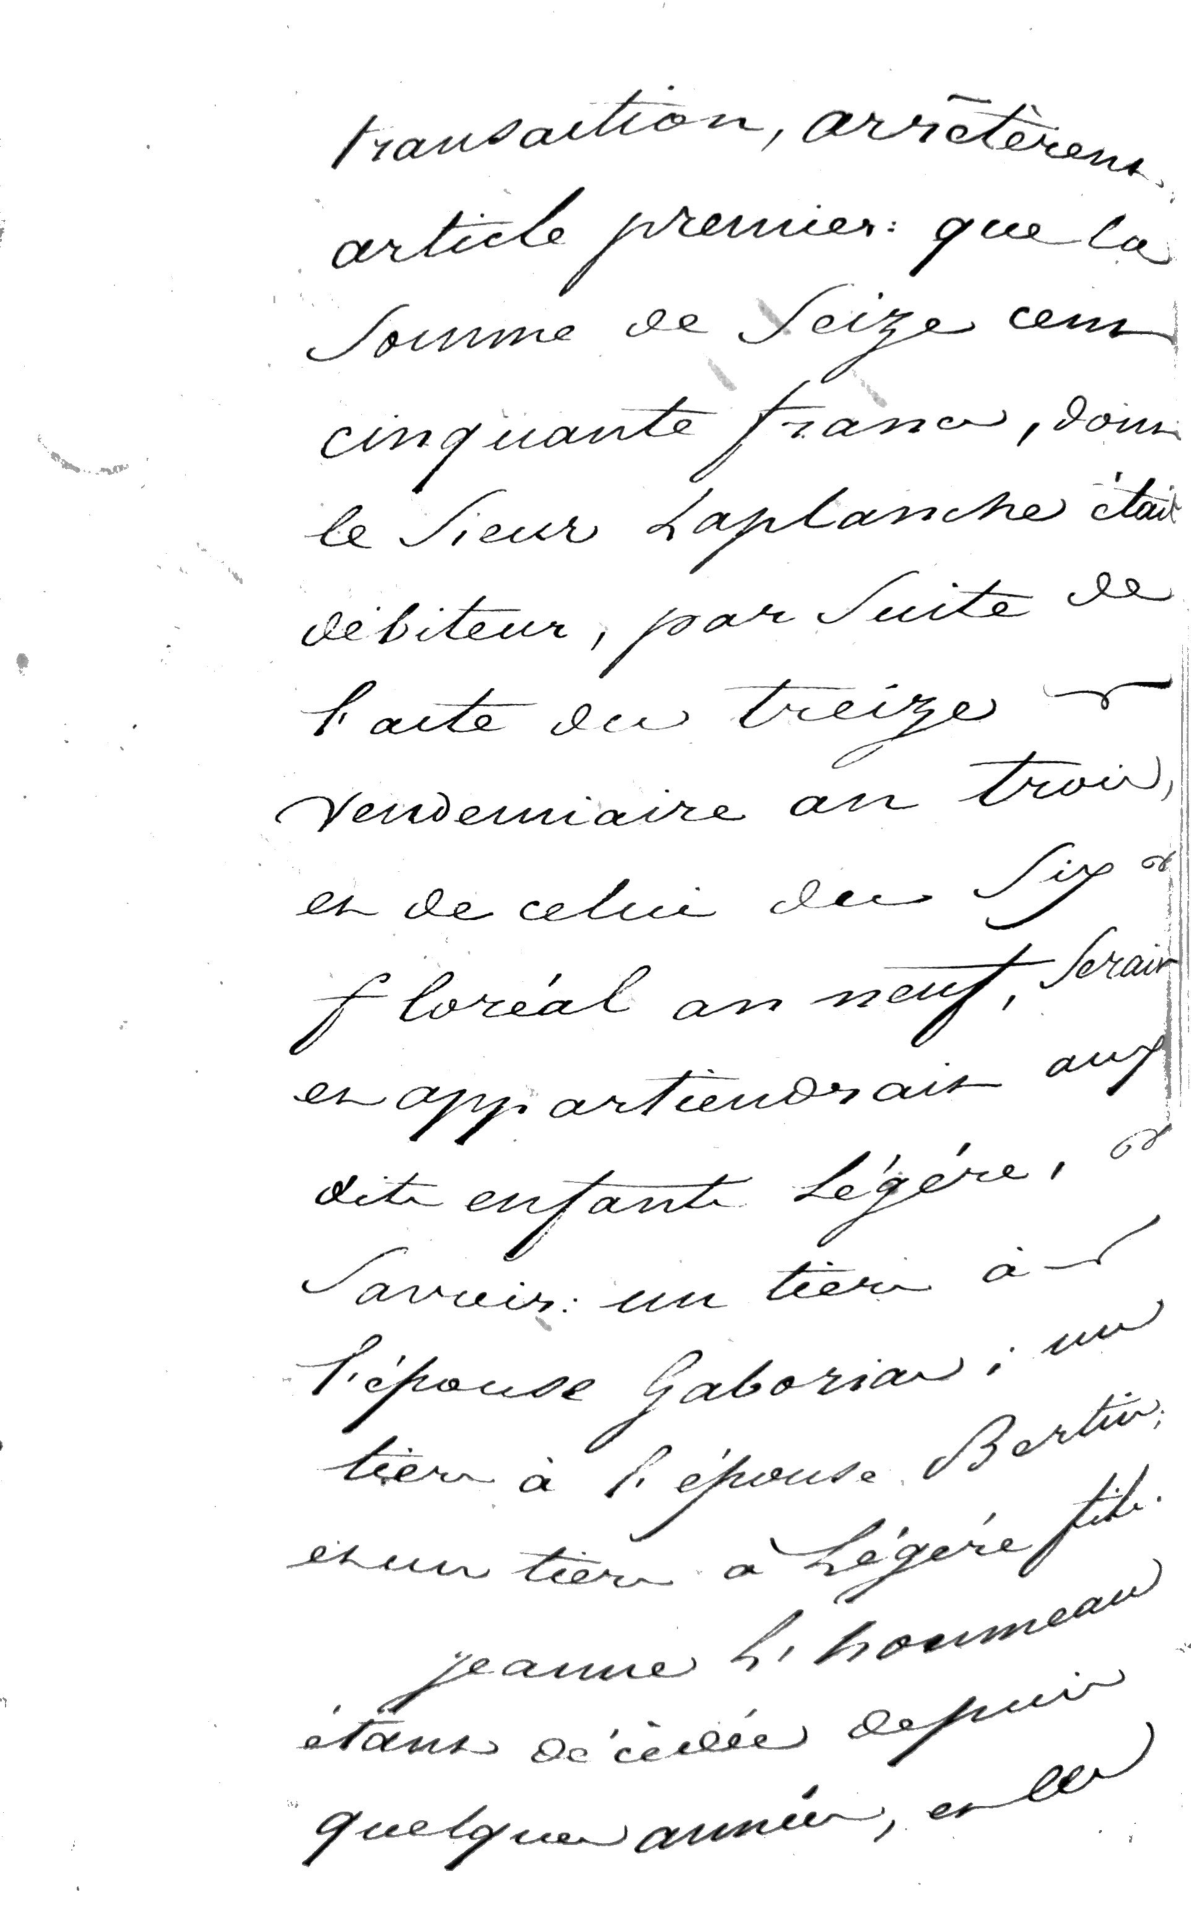 transaction, arrêtèrent.
article premier: que la
Somme de Seize cent
cinquante francs, dont
le Sieur Laplanche était
débiteur, par Suite de
l'acte du treize
vendemiaire an trois,
et de celui du Six
floréal an neuf, Serait
et appartiendrait aux
dits enfants Légéré,
Savoir: un tiers à
l'épouse Gaboriau; un
tiers à l'épouse Bertin;
et un tiers à Légéré fils.
jeanne L'houmeau
étant décédée depuis
quelques années, et les